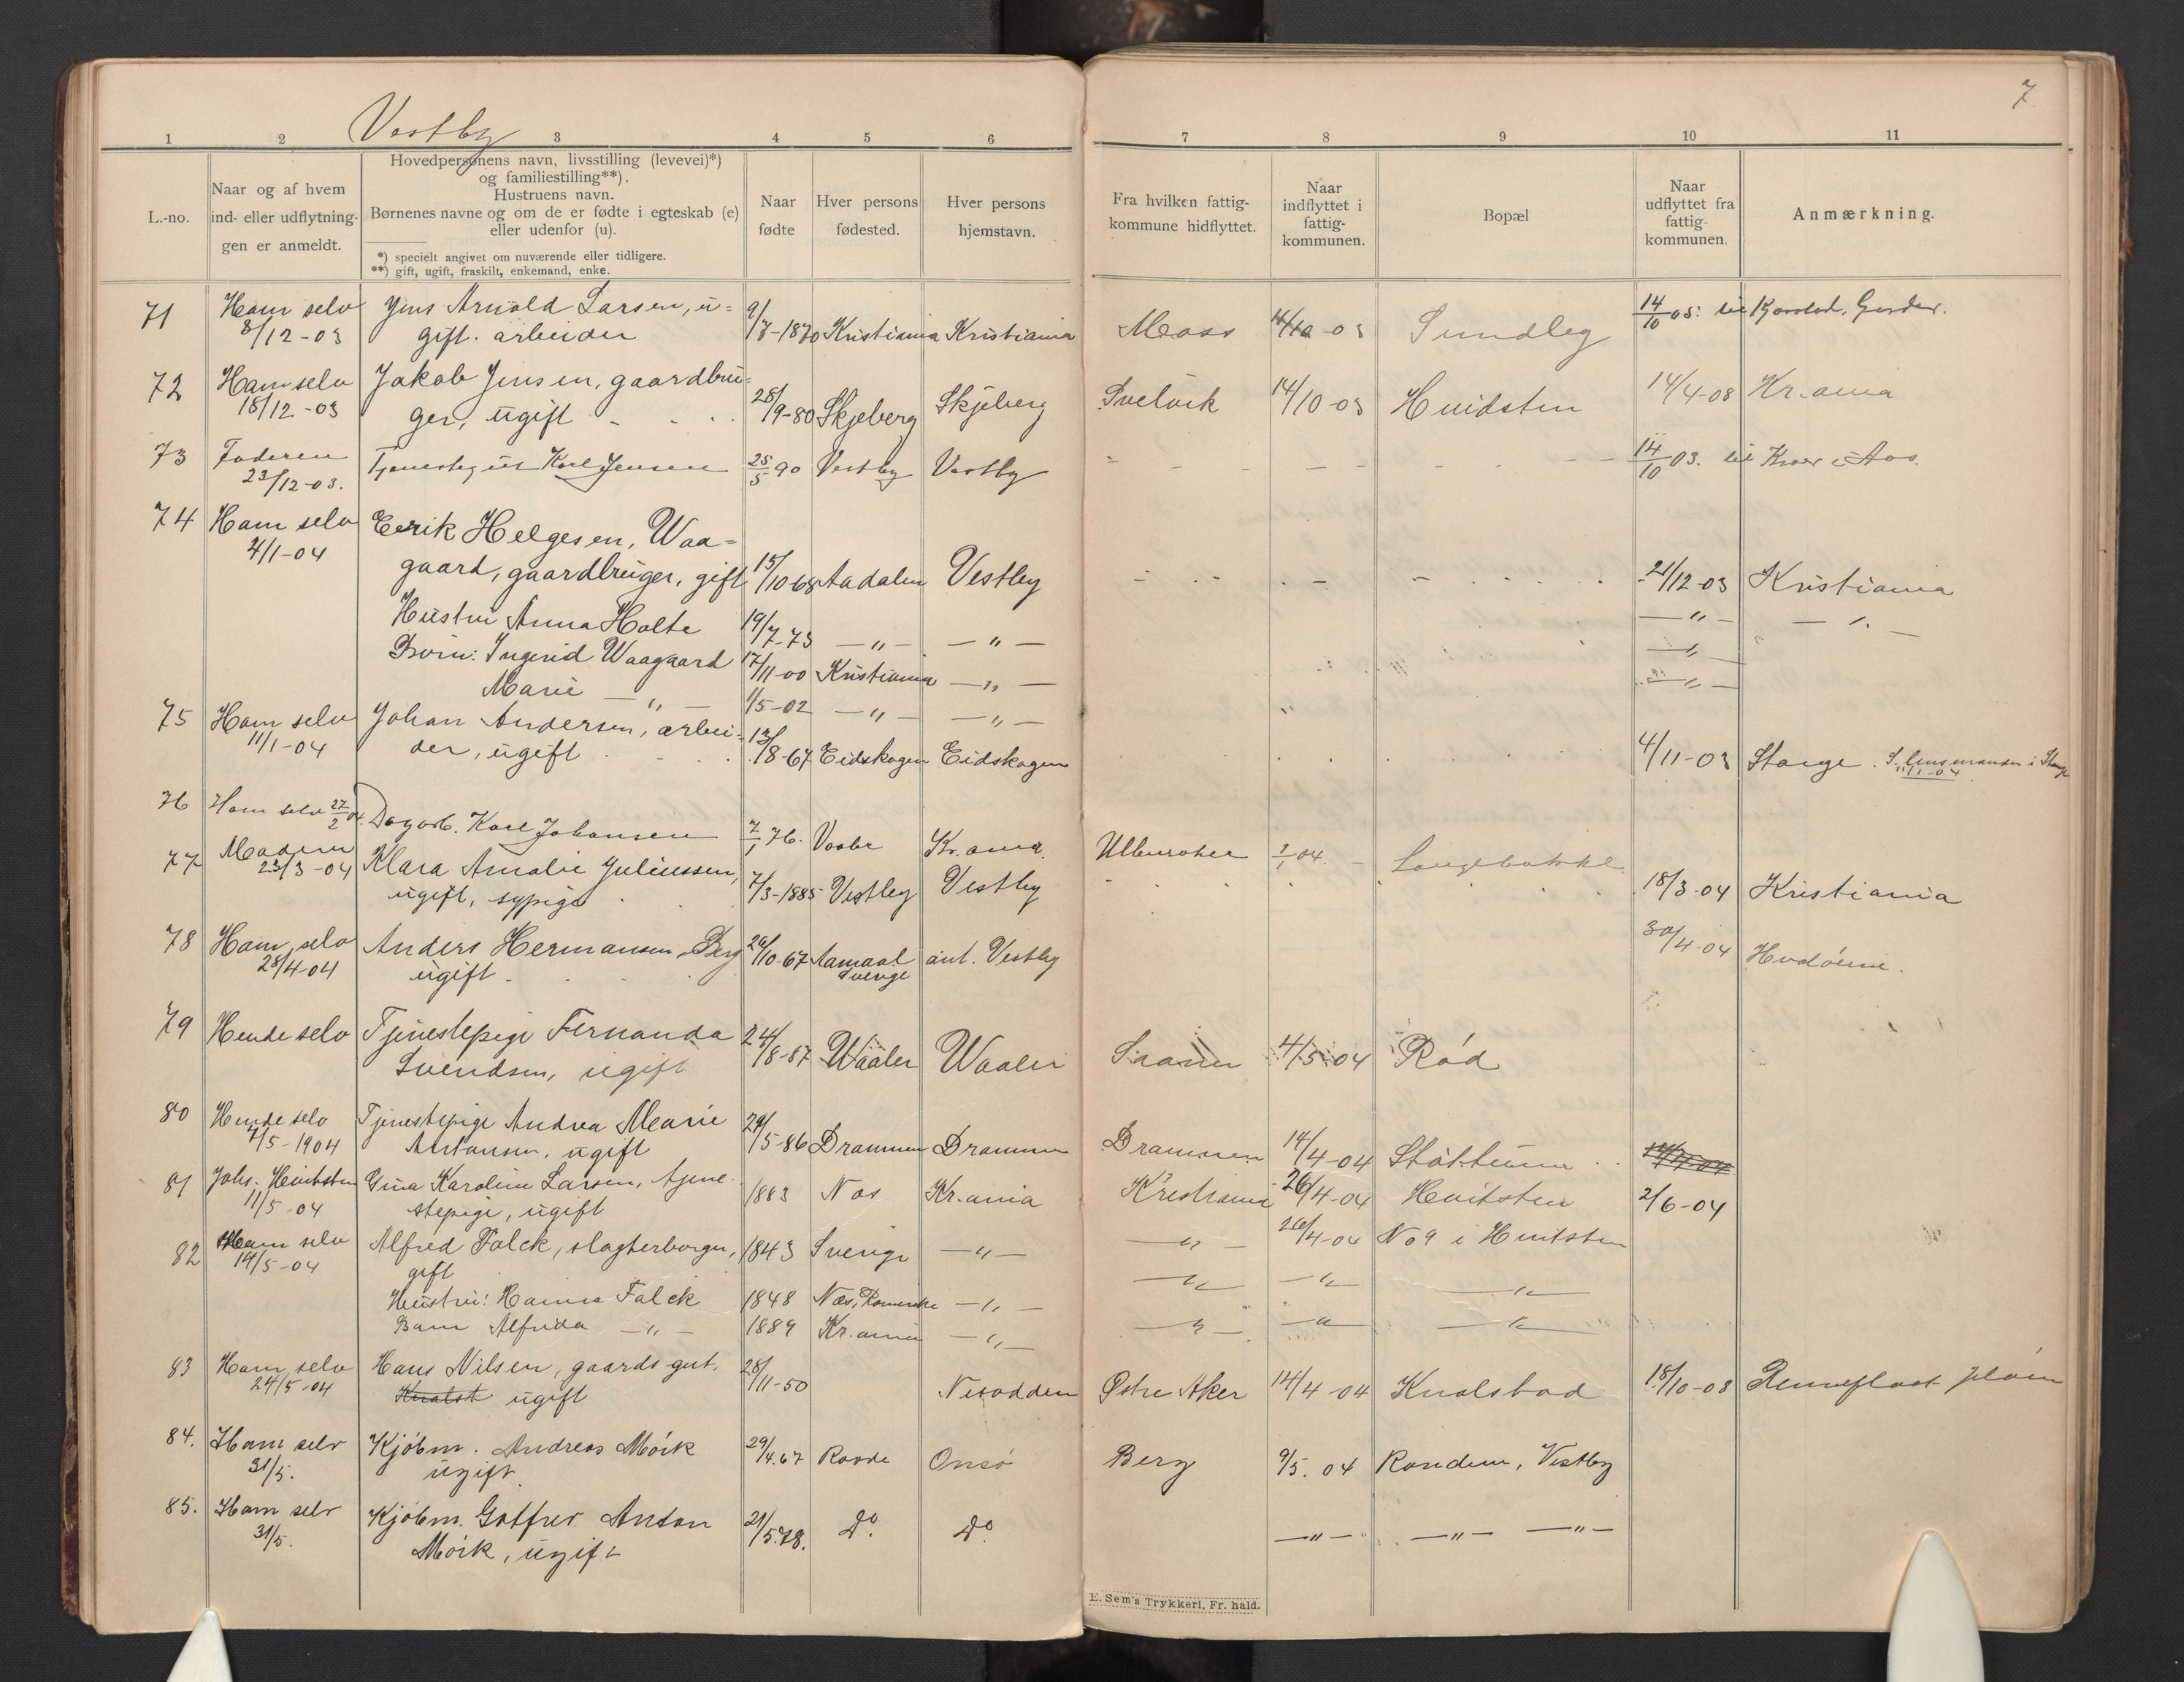 Vestby
7
1 2 3 4 5 6 7 8 9 10 11
L.-no.
Naar og af hvem
ind- eller udflytnin-
gen er anmeldt.
Hovedpersonens navn, livsstilling (levevei)*)
og familiestilling**).
Hustruens navn.
Børnenes navne og om de er fødte i egteskab (e)
eller udenfor (u).
*) specielt angivet om nuværende eller tidligere.
**) gift, ugift, fraskilt, enkemand, enke.
Naar
fødte
Hver persons
fødested.
Hver persons
hjemstavn.
Fra hvilken fattig-
kommune hidflyttet.
Naar
indflyttet i
fattig-
kommunen.
Bopæl
Naar
udflyttet fra
fattig-
kommunen.
Anmærkning.
71 Ham selv Jens Arnold Larsen, u- 9/7-1870 Kristiania Kristiania Moss 14/10-03 Sundby 14/10 05: til
8/12-03 gift. arbeider
72 Ham selv Jakob Jensen, gaardbru- 28/9-80 Skjeberg Skjeberg Svelvik 14/10-03 Hvidsten 14/4-08 Kr.ania
18/12-03 ger, ugift
73 Faderen Tjenestegut Karl Jensen 25/5 90 Vestby Vestby - - - 14/10 03. til Kroer i Aas.
23/12-03.
74 Ham selv Eerik Helgesen, Waa-
4/1-04 gaard, gaardbruger, gift 15/10-68 Aadalen Vestby - - - 21/12-03 Kristiania
Hustru Anna Holte 19/7-73 —"— —"— —"— —"—
Børn: Ingerid Waagaard 17/11-00 Kristiania —"— —"—
Marie —"— 1/5-02 —"— —"— —"—
75 Ham selv Johan Andersen, arbei- 13/8-67 Eidskogen Eidskogen 4/11-03 Stange. S. lensmanden i Stange
11/1-04 der, ugift 11/1-04
76 Ham selv 27/2 04. Dagarb. Karl Johansen 7/1 76. Vaaler Kr.ania. 04.
77 Moderen Klara Amalie Juliussen, 7/3-1885 Vestby Vestby 18/3-04 Kristiania
23/3-04 ugift, sypige
78 Ham selv Anders Hermansen Berg 26/10-67 Aamaal ant. Vestby 30/4-04
28/4-04 ugift. Sverige
79 Hende selv Tjenestepige Fernanda 24/8-87 Waaler Waaler Saaner 4/5-04 Rød
Svendsen, ugift
80 Hende selv Tjenestepige Andrea Marie 29/5-86 Drammen Drammen Drammen 14/4-04 Støttum
7/5-1904 Antonsen, ugift
81 Johs. Hvitsten Gina Karoline Larsen, tjene- 1883 Næs Kr.ania Kristiania 26/4-04 Hvitsten 2/6-04
11/5-04 stepige, ugift
82 Ham selv Alfred Falck, slagterborger, 1843 Sverige —"— —"— 26/4-04 No 9 i Hvitsten
14/5-04 gift
Hustru: Hanna Falck 1848 Næs, Romerike —"— —"— —"— —"—
Barn Alfrida —"— 1889 Kr.ania —"— —"— —"— —"—
83 Ham selv Hans Nilsen, gaardsgut. 28/11-50 Nesodden Østre Aker 14/4-04 Knalstad 18/10-08
24/5-04 Knalst ugift
84. Ham selv Kjøbm. Andreas Mörk 29/4.67 Raade Onsø Berg 9/5. 04 Randem, Vestby
31/5. ugift.
85. Ham selv Kjøbm. Gotfred Anton 21/5.78. Do. Do —"— —"— —"—
31/5. Mörk, ugift
E. Sem's Trykkeri, Fr. hald.